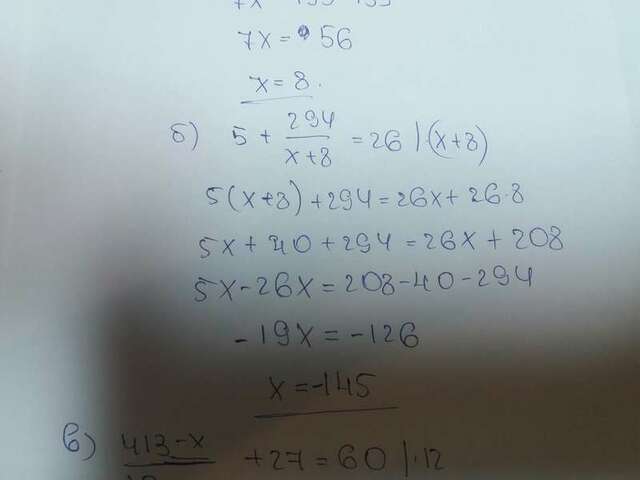 7x = 56
x = 8.
б) 5 + 294/(x+8) = 26 |·(x+8)
5(x+8) + 294 = 26x + 26·8
5x + 40 + 294 = 26x + 208
5x - 26x = 208 - 40 - 294
- 19x = -126
x = -145
в) 413-x
+ 27 = 60 |·12